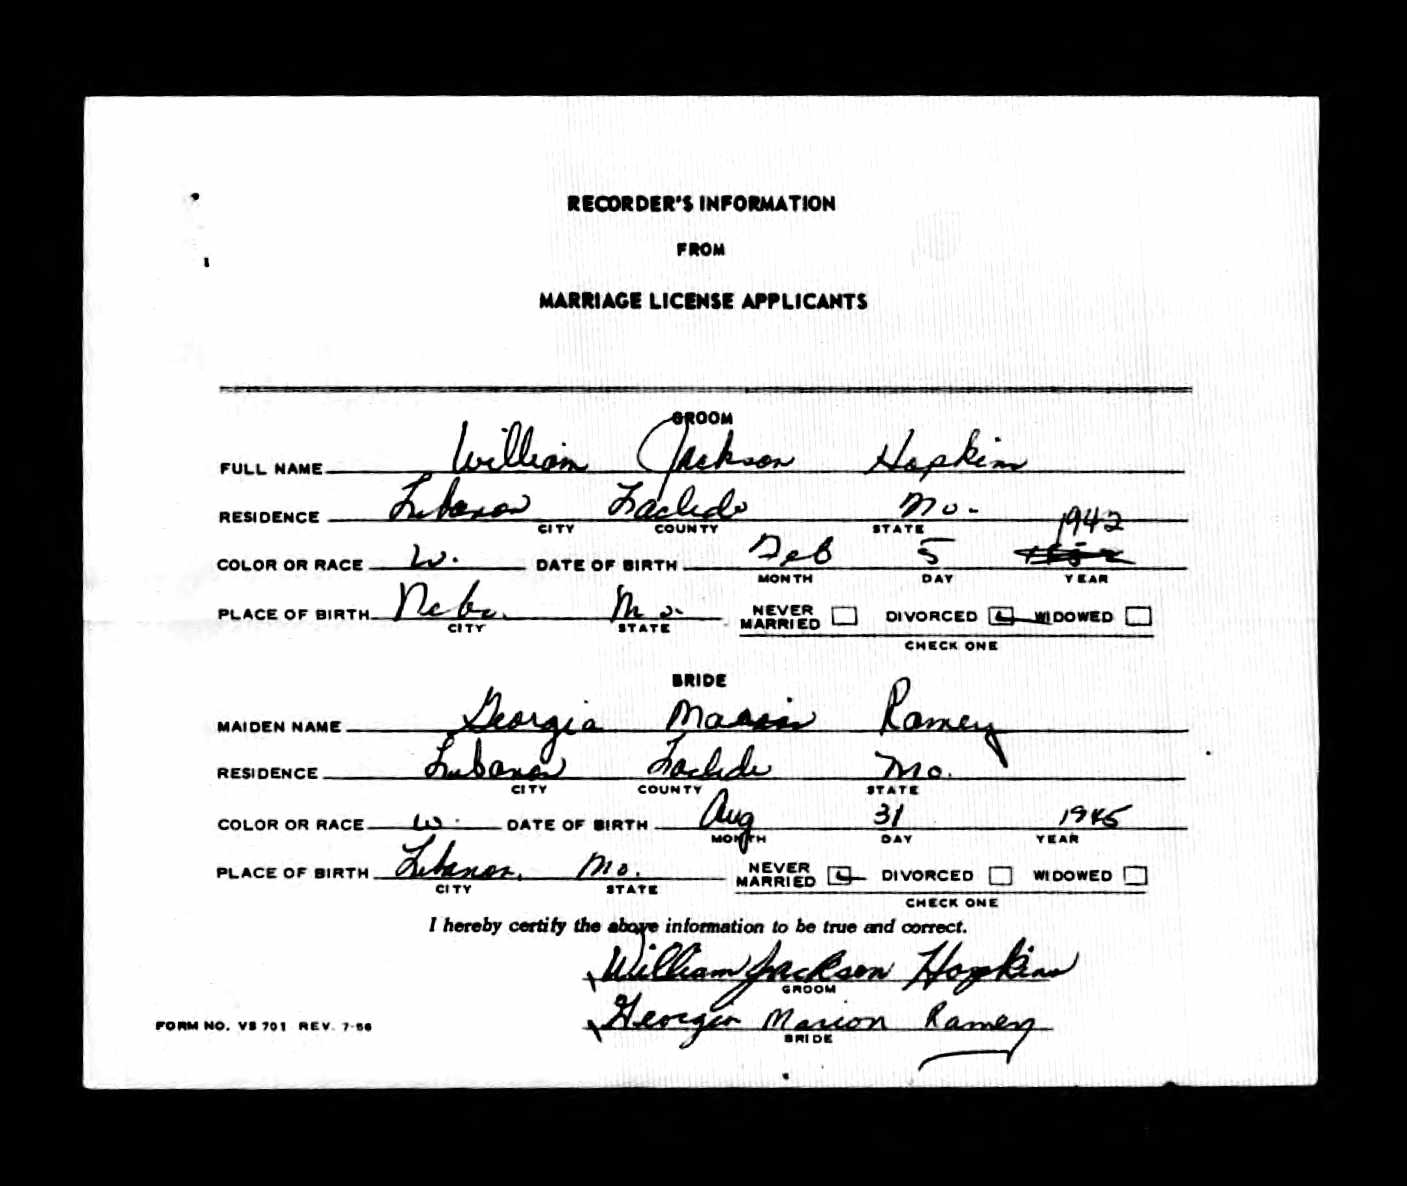 RECORDER'S INFORMATION
FROM
MARRIAGE LICENSE APPLICANTS
GROOM
FULL NAME William Jackson Hopkins
RESIDENCE Lebanon Laclede Mo.
CITY COUNTY STATE 1942
COLOR OR RACE W. DATE OF BIRTH Feb 5
MONTH DAY YEAR
PLACE OF BIRTH Mo. NEVER MARRIED DIVORCED WIDOWED
CITY STATE
CHECK ONE
BRIDE
MAIDEN NAME Georgia Marion Ramey
RESIDENCE Lebanon Laclede Mo.
CITY COUNTY STATE
COLOR OR RACE W. DATE OF BIRTH Aug 31 1945
MONTH DAY YEAR
PLACE OF BIRTH Lebanon, Mo. NEVER MARRIED DIVORCED WIDOWED
CITY STATE
CHECK ONE
I hereby certify the above information to be true and correct.
William Jackson Hopkins
GROOM
Georgia Marion Ramey
FORM NO. VS 701 REV. 7-56
BRIDE